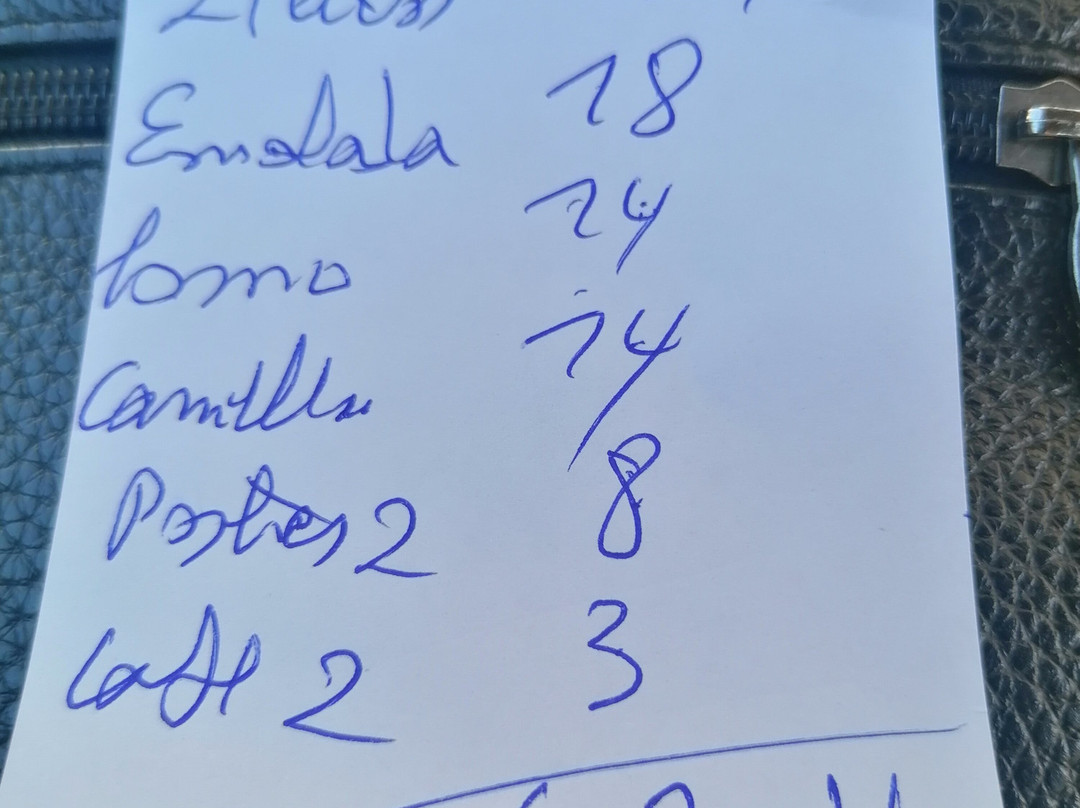 Ensalada 18
lomo 14
Carrillera 14
Postres 2 8
Cafe 2 3